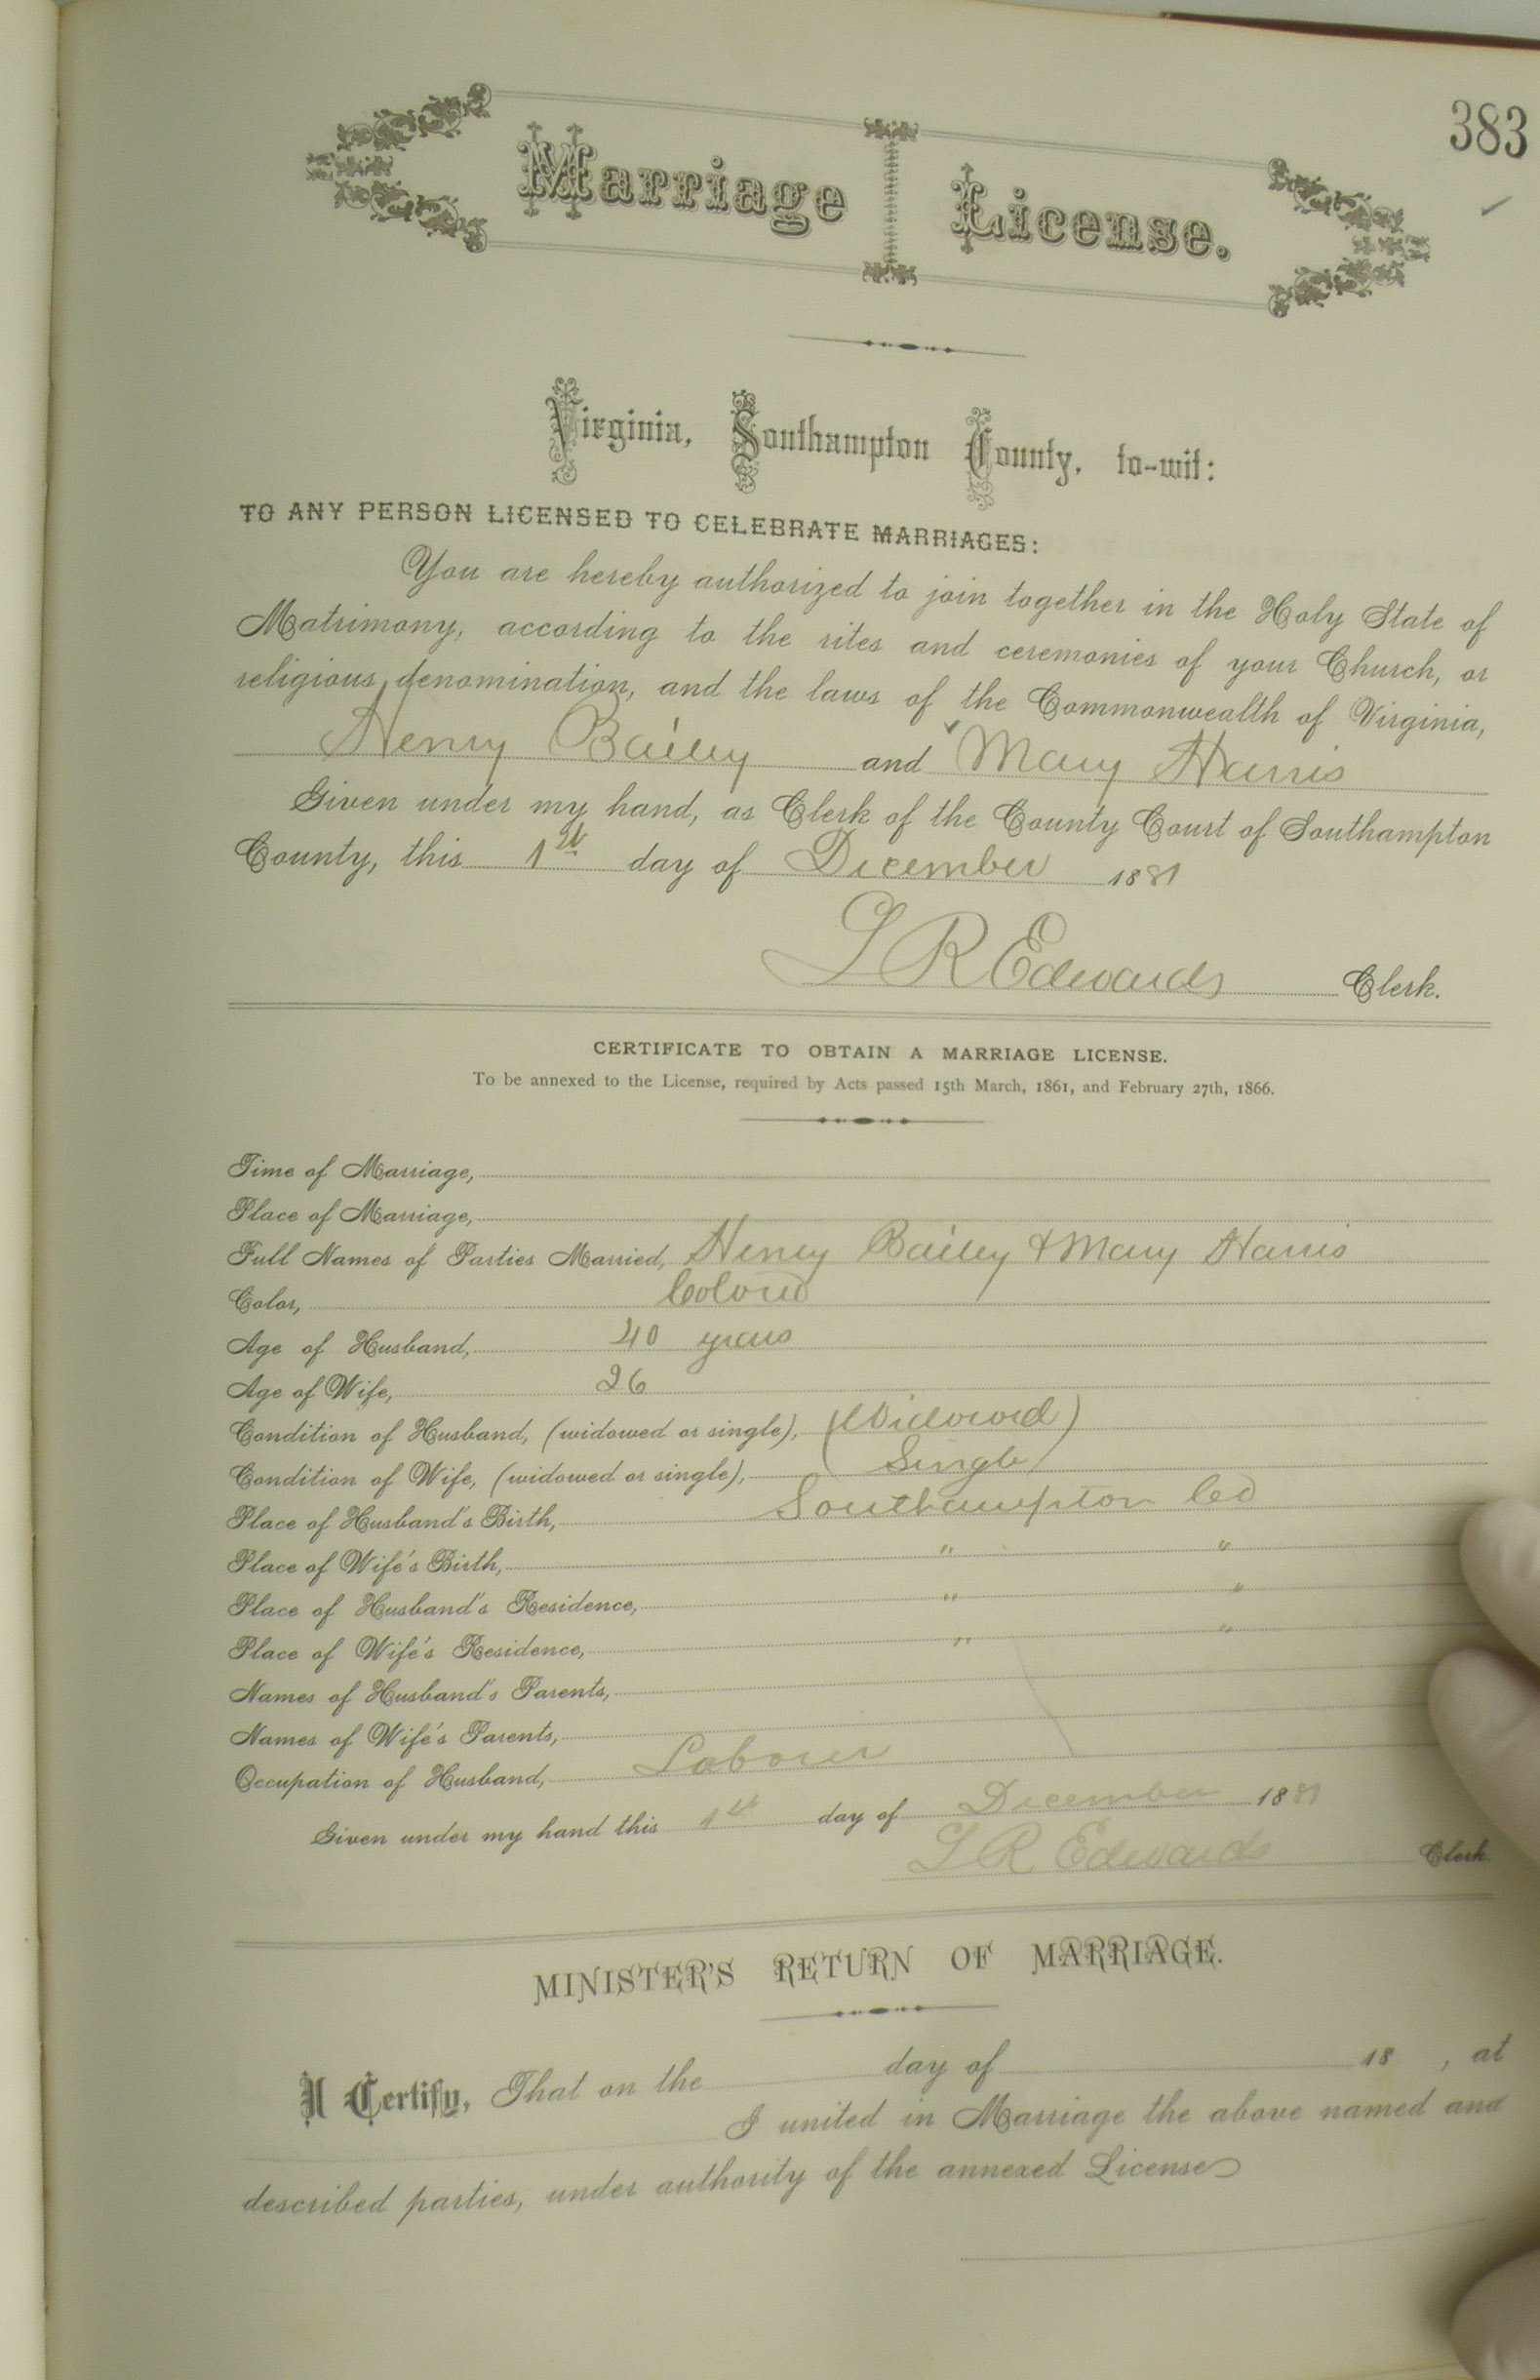 383
Marriage License.
Virginia, Southampton County, to-wit:
TO ANY PERSON LICENSED TO CELEBRATE MARRIAGES:
You are hereby authorized to join together in the Holy State of
Matrimony, according to the rites and ceremonies of your Church, or
religious denomination, and the laws of the Commonwealth of Virginia,
Henry Bailey and Mary Harris
Given under my hand, as Clerk of the County Court of Southampton
County, this 1st day of December 1881
L R Edwards Clerk.
CERTIFICATE TO OBTAIN A MARRIAGE LICENSE.
To be annexed to the License, required by Acts passed 15th March, 1861, and February 27th, 1866.
Time of Marriage,
Place of Marriage,
Full Names of Parties Married, Henry Bailey & Mary Harris
Color, Colored
Age of Husband, 40 years
Age of Wife, 26
Condition of Husband, (widowed or single), (Widowed)
Condition of Wife, (widowed or single), (Single)
Place of Husband's Birth, Southampton Co
Place of Wife's Birth, " "
Place of Husband's Residence, " "
Place of Wife's Residence, " "
Names of Husband's Parents,
Names of Wife's Parents,
Occupation of Husband, Laborer
Given under my hand this 1st day of December 1881
L R Edwards Clerk
MINISTER'S RETURN OF MARRIAGE.
I Certify, That on the day of 18 , at
I united in Marriage the above named and
described parties, under authority of the annexed License